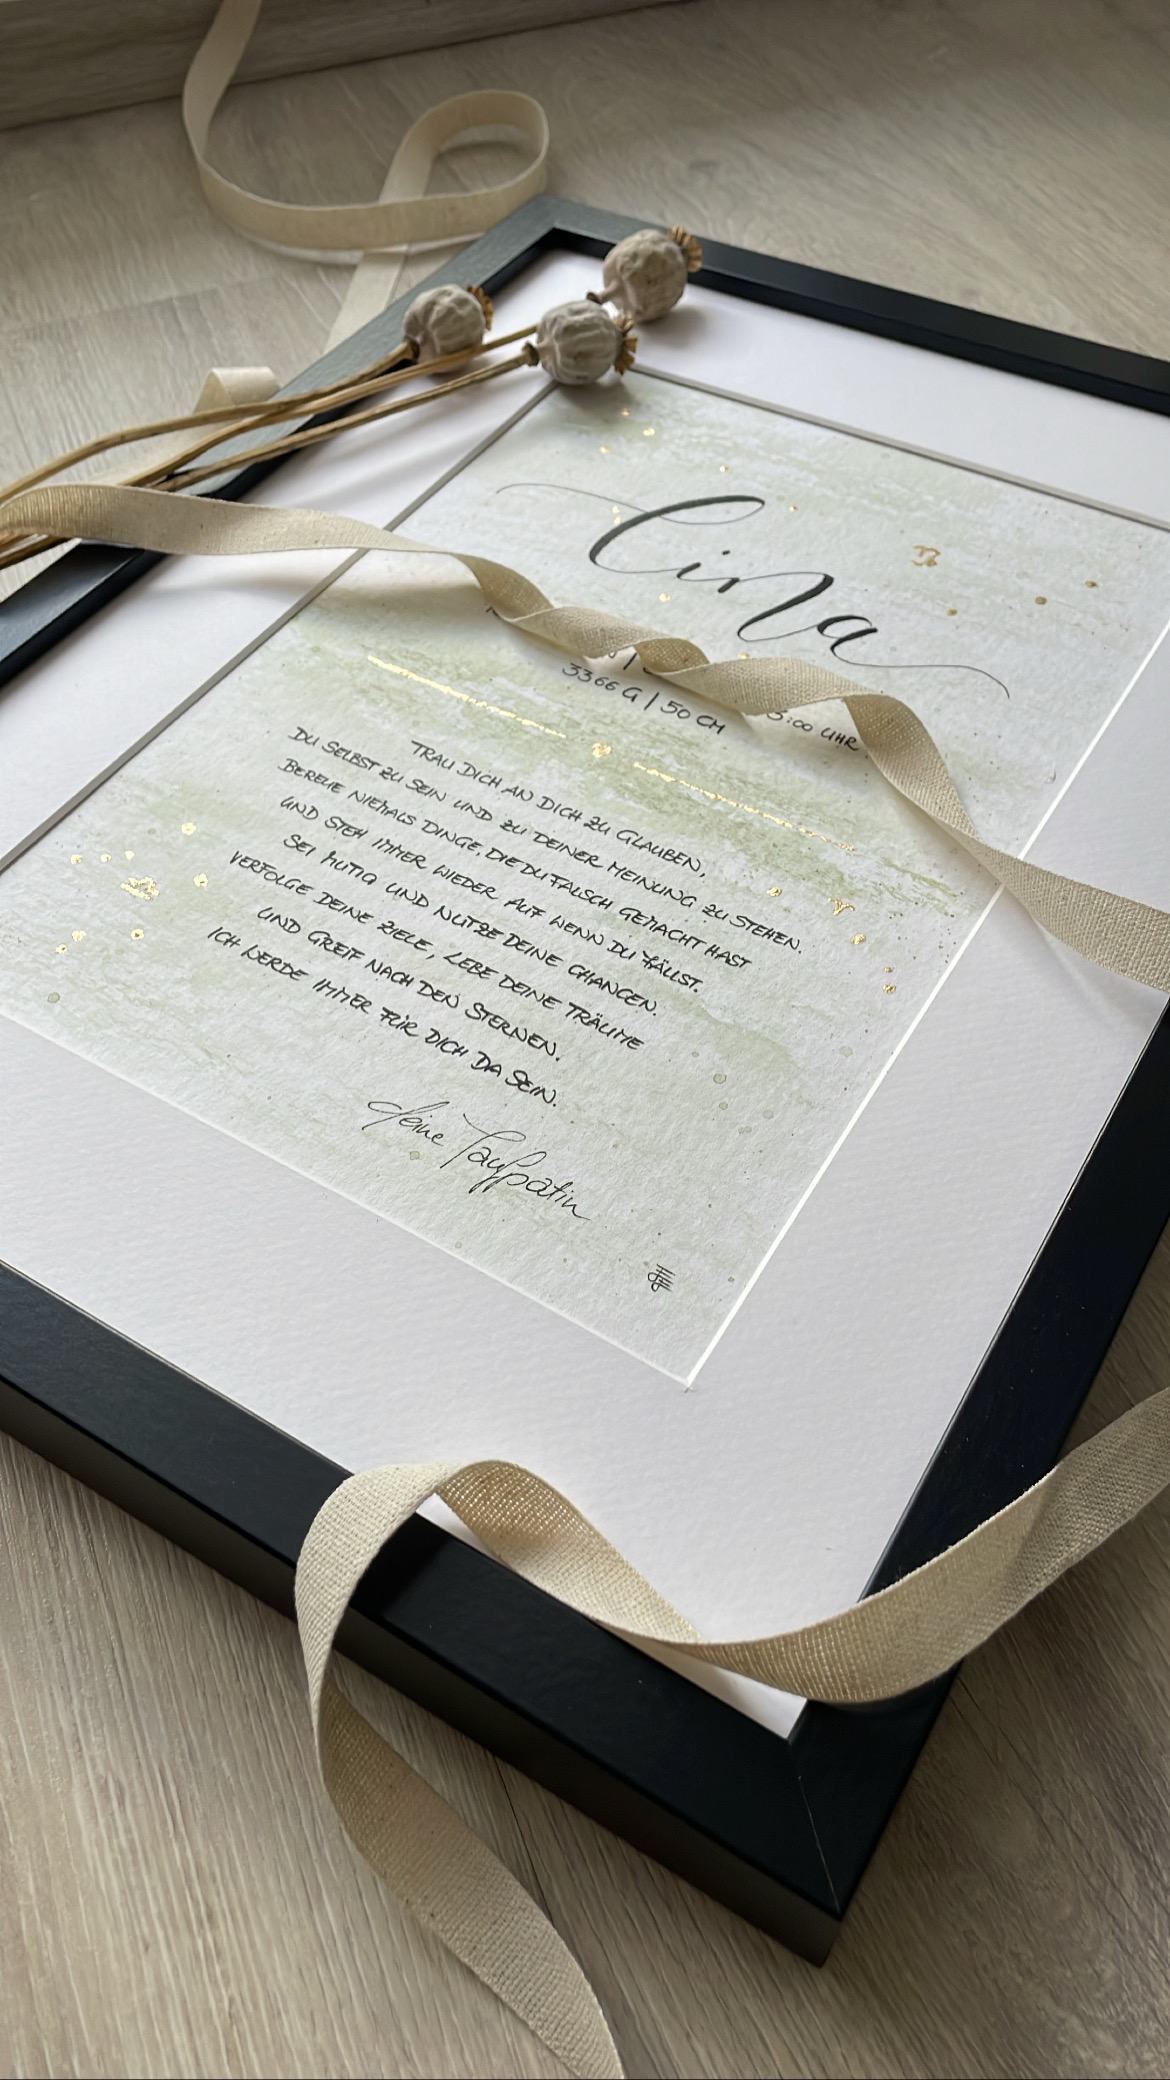 Lina
3366 G | 50 CM
3:00 UHR
TRAU DICH AN DICH ZU GLAUBEN,
DU SELBST ZU SEIN UND ZU DEINER MEINUNG ZU STEHEN.
BEREUE NIEMALS DINGE, DIE DU FALSCH GEMACHT HAST
UND STEH IMMER WIEDER AUF WENN DU FÄLLST.
SEI MUTIG UND NUTZE DEINE CHANCEN.
VERFOLGE DEINE ZIELE, LEBE DEINE TRÄUME
UND GREIF NACH DEN STERNEN.
ICH WERDE IMMER FÜR DICH DA SEIN.
deine Taufpatin